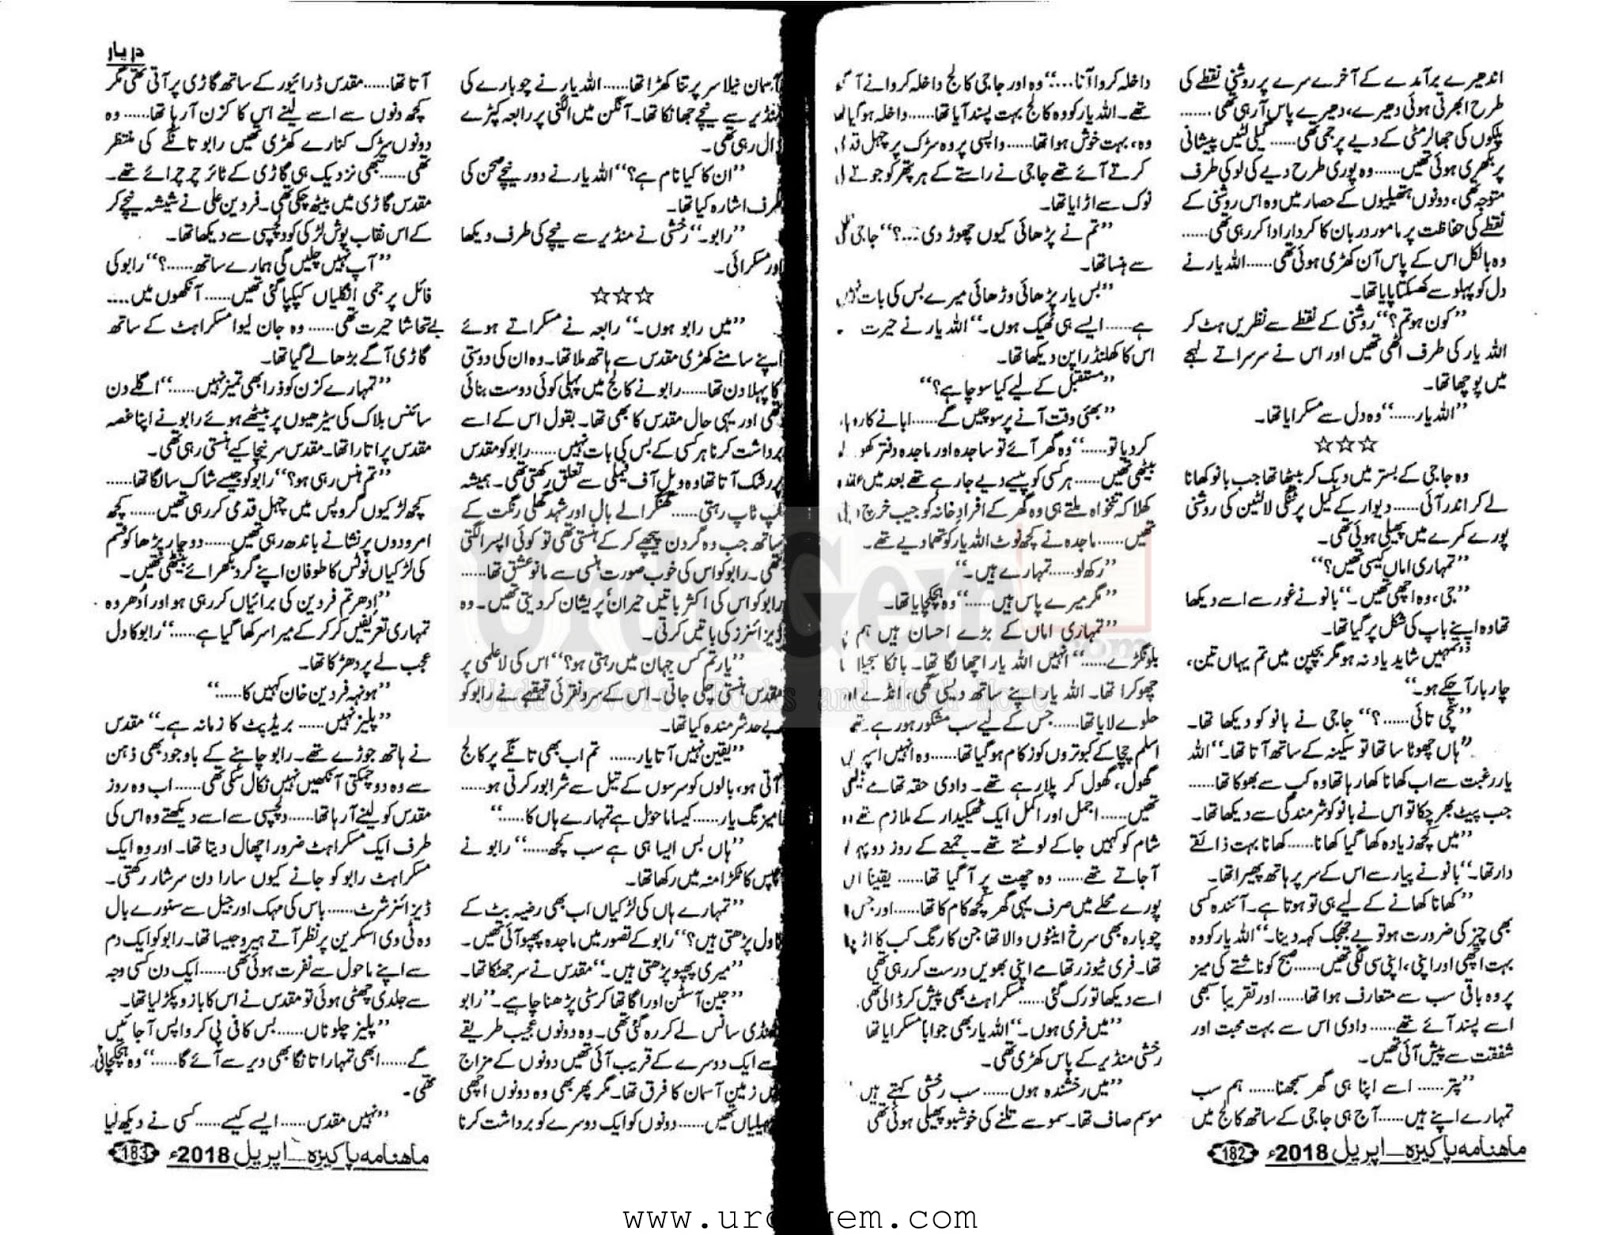 اندھیرے برآمدے کے آخرے سرے پر روشنی نقطے کی
طرح ابھرتی ہوئی دھیرے، دھیرے پاس آرہی تھی......
پلکوں کی جھالر مٹی کے دیے پر جمی تھی...... گیلی لٹیں پیشانی
پر بکھری ہوئی تھیں...... وہ پوری طرح دیے کی لو کی طرف
متوجہ تھی، دونوں ہتھیلیوں کے حصار میں وہ اس روشنی کے
نقطے کی حفاظت پر مامور دربان کا کردار ادا کر رہی تھی......
وہ بالکل اس کے پاس آن کھڑی ہوئی تھی...... اللہ یار نے
دل کو پہلو سے کھسکتا پایا تھا۔
’’کون ہو تم؟‘‘ روشنی کے نقطے سے نظریں ہٹ کر
اللہ یار کی طرف اٹھی تھیں اور اس نے سرسراتے لہجے
میں پوچھا تھا۔
’’اللہ یار......‘‘ وہ دل سے مسکرایا تھا۔
☆☆☆
وہ جاجی کے بستر میں دبک کر بیٹھا تھا جب بانو کھانا
لے کر اندر آئی...... دیوار کے کیل پر ٹنگی لالٹین کی روشنی
پورے کمرے میں پھیلی ہوئی تھی۔
’’تمہاری اماں کیسی تھیں؟‘‘
’’جی، وہ اچھی تھیں۔‘‘ بانو نے غور سے اسے دیکھا
تھا وہ اپنے باپ کی شکل پر گیا تھا۔
’’تمہیں شاید یاد نہ ہو مگر بچپن میں تم یہاں تین،
چار بار آچکے ہو۔‘‘
’’سچی تائی......؟‘‘ جاجی نے بانو کو دیکھا تھا۔
’’ہاں چھوٹا سا تھا تو سکینہ کے ساتھ آتا تھا۔‘‘ اللہ
یار رغبت سے اب کھانا کھا رہا تھا وہ کب سے بھوکا تھا۔
جب پیٹ بھر چکا تو اس نے بانو کو شرمندگی سے دیکھا تھا۔
’’میں کچھ زیادہ کھا گیا کھانا...... کھانا بہت ذائقے
دار تھا۔‘‘ بانو نے پیار سے اس کے سر پر ہاتھ پھیرا تھا۔
’’کھانا کھانے کے لیے ہی تو ہوتا ہے۔ آئندہ کسی
بھی چیز کی ضرورت ہو تو بے جھجک کہہ دینا۔‘‘ اللہ یار کو وہ
بہت اچھی اور اپنی، اپنی سی لگی تھیں...... صبح کو ناشتے کی میز
پر وہ باقی سب سے متعارف ہوا تھا...... اور تقریباً سبھی
اسے پسند آئے تھے...... دادی اس سے بہت محبت اور
شفقت سے پیش آئی تھیں۔
’’پتر...... اسے اپنا ہی گھر سمجھنا...... ہم سب
تمہارے اپنے ہیں...... آج ہی جاجی کے ساتھ کالج میں
داخلہ کروا آنا....‘‘ وہ اور جاجی کالج داخلہ کروانے آئے
تھے۔ اللہ یار کو وہ کالج بہت پسند آیا تھا...... داخلہ ہو گیا تھا
وہ، بہت خوش ہوا تھا...... واپسی پر وہ سڑک پر چہل قدمی
کرتے آئے تھے جاجی نے راستے کے ہر پتھر کو جوتے کی
نوک سے اڑایا تھا۔
’’تم نے پڑھائی کیوں چھوڑ دی....؟‘‘ جاجی
سے ہنسا تھا۔
’’بس یار پڑھائی وڑھائی میرے بس کی بات نہیں
ہے...... ایسے ہی ٹھیک ہوں۔‘‘ اللہ یار نے حیرت
اس کا کھلنڈراپن دیکھا تھا۔
’’مستقبل کے لیے کیا سوچا ہے؟‘‘
’’بھئی وقت آنے پر سوچیں گے...... ابا نے کاروبار
کر دیا تو......‘‘ وہ گھر آئے تو ساجدہ اور ماجدہ دفتر کھولے
بیٹھی تھیں...... ہر کسی کو پیسے دیے جا رہے تھے بعد میں عقدہ
کھلا کہ تنخواہ ملتے ہی وہ گھر کے افراد خانہ کو جیب خرچ دیتی
تھیں...... ماجدہ نے کچھ نوٹ اللہ یار کو تھما دیے تھے۔
’’رکھ لو...... تمہارے ہیں۔‘‘
’’مگر میرے پاس ہیں......‘‘ وہ ہچکچایا تھا۔
’’تمہاری اماں کے بڑے احسان ہیں ہم پر
بلونگڑے......‘‘ انہیں اللہ یار اچھا لگا تھا۔ بانکا سجیلا سا
چھوکرا تھا۔ اللہ یار اپنے ساتھ دیسی گھی، انڈے اور
حلوے لایا تھا...... جس کے لیے سب مشکور ہو رہے تھے
اسلم چچا کے کبوتروں کو زکام ہو گیا تھا...... وہ انہیں اسپرین
گھول، گھول کر پلا رہے تھے۔ دادی حقہ تھامے بیٹھی
تھیں...... اجمل اور اکمل ایک ٹھیکیدار کے ملازم تھے وہ
شام کو کہیں جا کے لوٹتے تھے۔ جمعے کے روز دوپہر کو
آجاتے تھے...... وہ چھت پر آگیا تھا...... یقیناً اس
پورے محلے میں صرف یہی گھر کچھ کام کا تھا...... اور جس کا
چوبارہ بھی سرخ اینٹوں والا تھا جن کا رنگ کب کا اڑ چکا
تھا۔ فری ٹیوزر تھامے اپنی بھویں درست کر رہی تھی
اسے دیکھا تو رک گئی...... مسکراہٹ بھی پیش کر ڈالی تھی۔
’’میں فری ہوں۔‘‘ اللہ یار بھی جواباً مسکرایا تھا
رخشی منڈیر کے پاس کھڑی تھی۔
’’میں رخشندہ ہوں...... سب رخشی کہتے ہیں
موسم صاف تھا۔ سموسے تلنے کی خوشبو پھیلی ہوئی تھی
ماهنامہ پاکیزہ — اپریل 2018ء
182
در یار
آسمان نیلا سر پر تنا کھڑا تھا...... اللہ یار نے چوبارے کی
منڈیر سے نیچے جھانکا تھا۔ آنگن میں الگنی پر رابعہ کپڑے
ڈال رہی تھی۔
’’ان کا کیا نام ہے؟‘‘ اللہ یار نے دور نیچے صحن کی
طرف اشارہ کیا تھا۔
’’رابو۔‘‘ رخشی نے منڈیر سے نیچے کی طرف دیکھا
اور مسکرائی۔
☆☆☆
’’میں رابو ہوں۔‘‘ رابعہ نے مسکراتے ہوئے
اپنے سامنے کھڑی مقدس سے ہاتھ ملا تھا۔ وہ ان کی دوستی
کا پہلا دن تھا...... رابو نے کالج میں پہلی کوئی دوست بنائی
تھی اور یہی حال مقدس کا بھی تھا۔ بقول اس کے اسے
برداشت کرنا ہر کسی کے بس کی بات نہیں...... رابو کو مقدس
پر رشک آتا تھا وہ ویل آف فیملی سے تعلق رکھتی تھی۔ ہمیشہ
ٹپ ٹاپ رہتی...... گھنگرالے بال اور شہد گھلی رنگت کے
ساتھ جب وہ گردن پیچھے کر کے ہنستی تھی تو کوئی اپسرا لگتی
تھی۔ رابو کو اس کی خوب صورت ہنسی سے مانو عشق تھا......
رابو کو اس کی اکثر باتیں حیران، پریشان کر دیتی تھیں۔ وہ
ڈیزائنرز کی باتیں کرتی۔
’’یار تم کس جہان میں رہتی ہو؟‘‘ اس کی لاعلمی پر
مقدس ہنستی چلی جاتی۔ اس کے سرد نقرئی قہقہے نے رابو کو
بے حد شرمندہ کیا تھا۔
’’یقین نہیں آتا یار...... تم اب بھی تانگے پر کالج
آتی ہو، بالوں کو سرسوں کے تیل سے شرابور کرتی ہو......
امیزنگ یار...... کیسا ماحول ہے تمہارے ہاں کا......‘‘
’’ہاں بس ایسا ہی ہے سب کچھ......‘‘ رابو نے
چپس کا ٹکڑا منہ میں رکھا تھا۔
’’تمہارے ہاں کی لڑکیاں اب بھی رضیہ بٹ کے
ناول پڑھتی ہیں؟‘‘ رابو کے تصور میں ماجدہ پھپو آئی تھیں۔
’’میری پھپو پڑھتی ہیں۔‘‘ مقدس نے سر جھٹکا تھا۔
’’جین آسٹن اور اگاتھا کرسٹی پڑھنا چاہیے۔‘‘ رابو
ٹھنڈی سانس لے کر رہ گئی تھی۔ وہ دونوں عجیب طریقے
سے ایک دوسرے کے قریب آئی تھیں دونوں کے مزاج
میں زمین آسمان کا فرق تھا۔ مگر پھر بھی وہ دونوں اچھی
سہیلیاں تھیں...... دونوں کو ایک دوسرے کو برداشت کرنا
آتا تھا...... مقدس ڈرائیور کے ساتھ گاڑی پر آتی تھی مگر
کچھ دنوں سے اسے لینے اس کا کزن آرہا تھا...... وہ
دونوں سڑک کنارے کھڑی تھیں رابو تانگے کی منتظر
تھی...... تبھی نزدیک ہی گاڑی کے ٹائر چرچرائے تھے۔
مقدس گاڑی میں بیٹھ چکی تھی۔ فردین علی نے شیشہ نیچے کر
کے اس نقاب پوش لڑکی کو دلچسپی سے دیکھا تھا۔
’’آپ نہیں چلیں گی ہمارے ساتھ......؟‘‘ رابو کی
فائل پر جمی انگلیاں کپکپا گئی تھیں...... آنکھوں میں....
بے تحاشا حیرت تھی...... وہ جان لیوا مسکراہٹ کے ساتھ
گاڑی آگے بڑھا لے گیا تھا۔
’’تمہارے کزن کو ذرا بھی تمیز نہیں......‘‘ اگلے دن
سائنس بلاک کی سیڑھیوں پر بیٹھے ہوئے رابو نے اپنا غصہ
مقدس پر اتارا تھا۔ مقدس سر نیچا کیے ہنستی رہی تھی۔
’’تم ہنس رہی ہو؟‘‘ رابو کو جیسے شاک سا لگا تھا......
کچھ لڑکیوں گروپس میں چہل قدمی کر رہی تھیں...... کچھ
امرودوں پر نشانے باندھ رہی تھیں...... دو چار پڑھاکو قسم
کی لڑکیاں نوٹس کا طوفان اپنے گرد بکھرائے بیٹھی تھیں۔
’’ادھر تم فردین کی برائیاں کر رہی ہو اور اُدھر وہ
تمہاری تعریفیں کر کر کے میرا سر کھا گیا ہے......‘‘ رابو کا دل
عجب لے پر دھڑکا تھا۔
’’ہونہہ فردین خان کہیں کا......‘‘
’’پلیز نہیں...... بریڈ پٹ کا زمانہ ہے۔‘‘ مقدس
نے ہاتھ جوڑے تھے۔ رابو چاہنے کے باوجود بھی ذہن
سے وہ دو چمکتی آنکھیں نہیں نکال سکی تھی...... اب وہ روز
مقدس کو لینے آرہا تھا...... دلچسپی سے اسے دیکھتے وہ اس کی
طرف ایک مسکراہٹ ضرور اچھال دیتا تھا۔ اور وہ ایک
مسکراہٹ رابو کو جانے کیوں سارا دن سرشار رکھتی۔
ڈیزائنر شرٹ...... باس کی مہک اور جیل سے سنورے بال
وہ ٹی وی اسکرین پر نظر آتے ہیرو جیسا تھا۔ رابو کو ایک دم
سے اپنے ماحول سے نفرت ہوئی تھی...... ایک دن کسی وجہ
سے جلدی چھٹی ہوئی تو مقدس نے اس کا بازو پکڑ لیا تھا۔
’’پلیز چلو ناں...... بس کافی پی کر واپس آجائیں
گے...... ابھی تمہارا تانگا بھی دیر سے آئے گا......‘‘ وہ ہچکچائی
تھی۔
’’نہیں مقدس...... ایسے کیسے...... کسی نے دیکھ لیا
ماهنامہ پاکیزہ — اپریل 2018ء
183
UrduGem
.com
Urdu Novels Books and Much More
www.urdugem.com